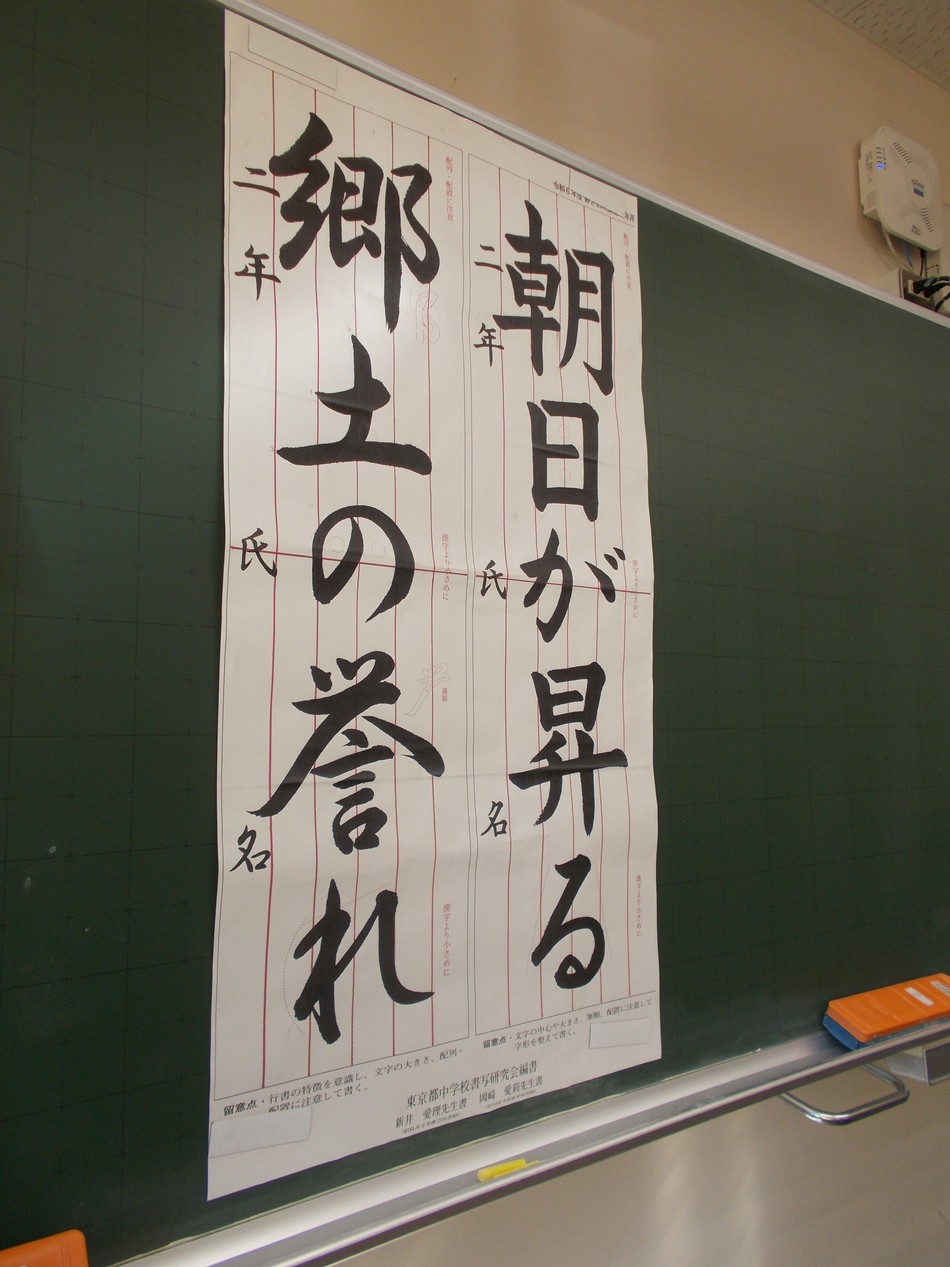 朝日が昇る
二年 氏 名
配列・配置に注意
漢字より小さめに
漢字より小さめに
留意点・文字の中心や大きさ、筆順、配置に注意して
字形を整えて書く。
郷土の誉れ
二年 氏 名
配列・配置に注意
漢字より小さめに
連続
漢字より小さめに
留意点・行書の特徴を意識し、文字の大きさ、配列・
配置に注意して書く。
東京都中学校書写研究会編書
新井 愛理先生書 岡崎 愛莉先生書